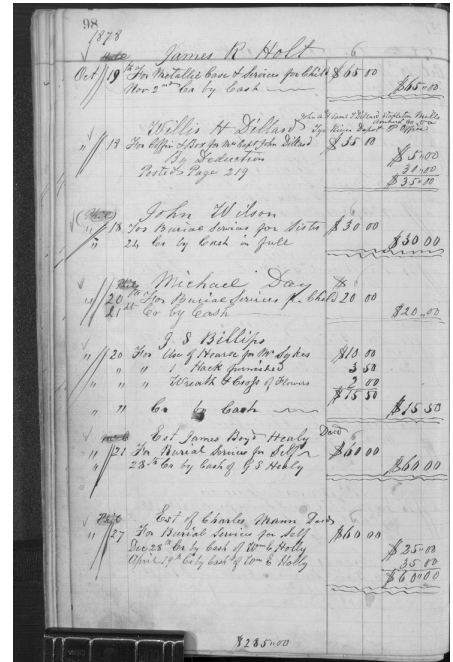 98
1878
James R Holt 6
Oct 19th For Metallic Case & Services for Child $65 00
Nov 2nd Cr by Cash $65.00
Willis H Dillard
" 18 For Coffin & Box for Mr Capt John Dillard $35 00
Tye River Depot P. Office
By Deduction $5.00
Posted Page 219 30.00
$35.00
John Wilson
" 18 For Burial Services for Sister $30 00
" 24 Cr by Cash in full $30.00
Michael Day
" 20th For Burial Services for Child 20 00
21st Cr by Cash $20.00
J. S Billips
" 20 For Use of Hearse for Mr Sykes $10 00
" " " 1 Hack furnished 3 50
" " " Wreath & Cross of Flowers 2 00
$15 50
" " Cr by Cash $15.50
Est James Boyd Healy Dec'd 6
" 21 For Burial Services for Self $60 00
" 28th Cr by Cash of G S Healy $60.00
Est of Charles Mann Dec'd
" 27 For Burial Services for Self $60 00
Dec 28th Cr by Cash of Wm E Holly $25.00
April 19th Cr by Cash of Wm E Holly 35 00
$60.00
$285.00